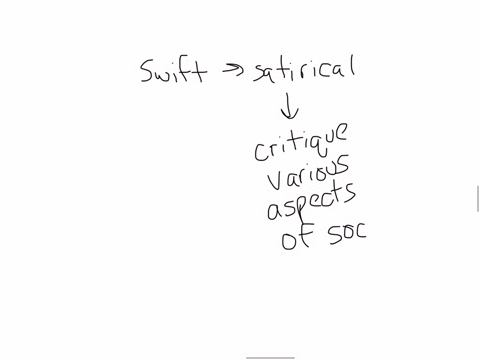 Swift → satirical
↓
critique
various
aspects
of soc